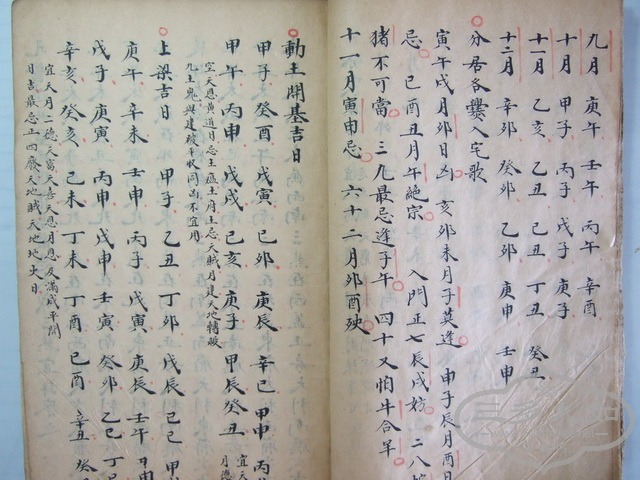 九月 庚午 壬午 丙午 辛酉
十月 甲子 丙子 戊子 庚子
十一月 乙亥 乙丑 己丑 丁丑 癸丑
十二月 辛卯 癸卯 乙卯 庚申 壬申
分居各爨入宅歌
寅午戌月卯日凶 亥卯未月子莫逢 申子辰月酉日
忌 巳酉丑月午絕宗 入門正七辰戌妨 二八
猪不可當 三九最忌逢子午 四十又怕牛合羊
十一月寅申忌 六十二月卯酉殃
動土開基吉日
甲子 癸酉 戊寅 己卯 庚辰 辛巳 甲申 丙
甲午 丙申 戊戌 己亥 庚子 甲辰 癸丑
宜天恩黄道月忌土瘟土府土忌天賊月建天地轉殺
九土鬼與建破平收同凶不宜用
上梁吉日 甲子 乙丑 丁卯 戊辰 己巳
庚午 辛未 壬申 丙子 戊寅 庚辰 壬午
戊子 庚寅 丙申 戊申 壬寅 癸卯 乙巳
辛亥 癸亥 己未 丁未 丁酉 己酉 辛丑 癸
宜天月二德天富天喜天恩月恩及滿成平開
日吉最忌正四廢天地賊天地火日